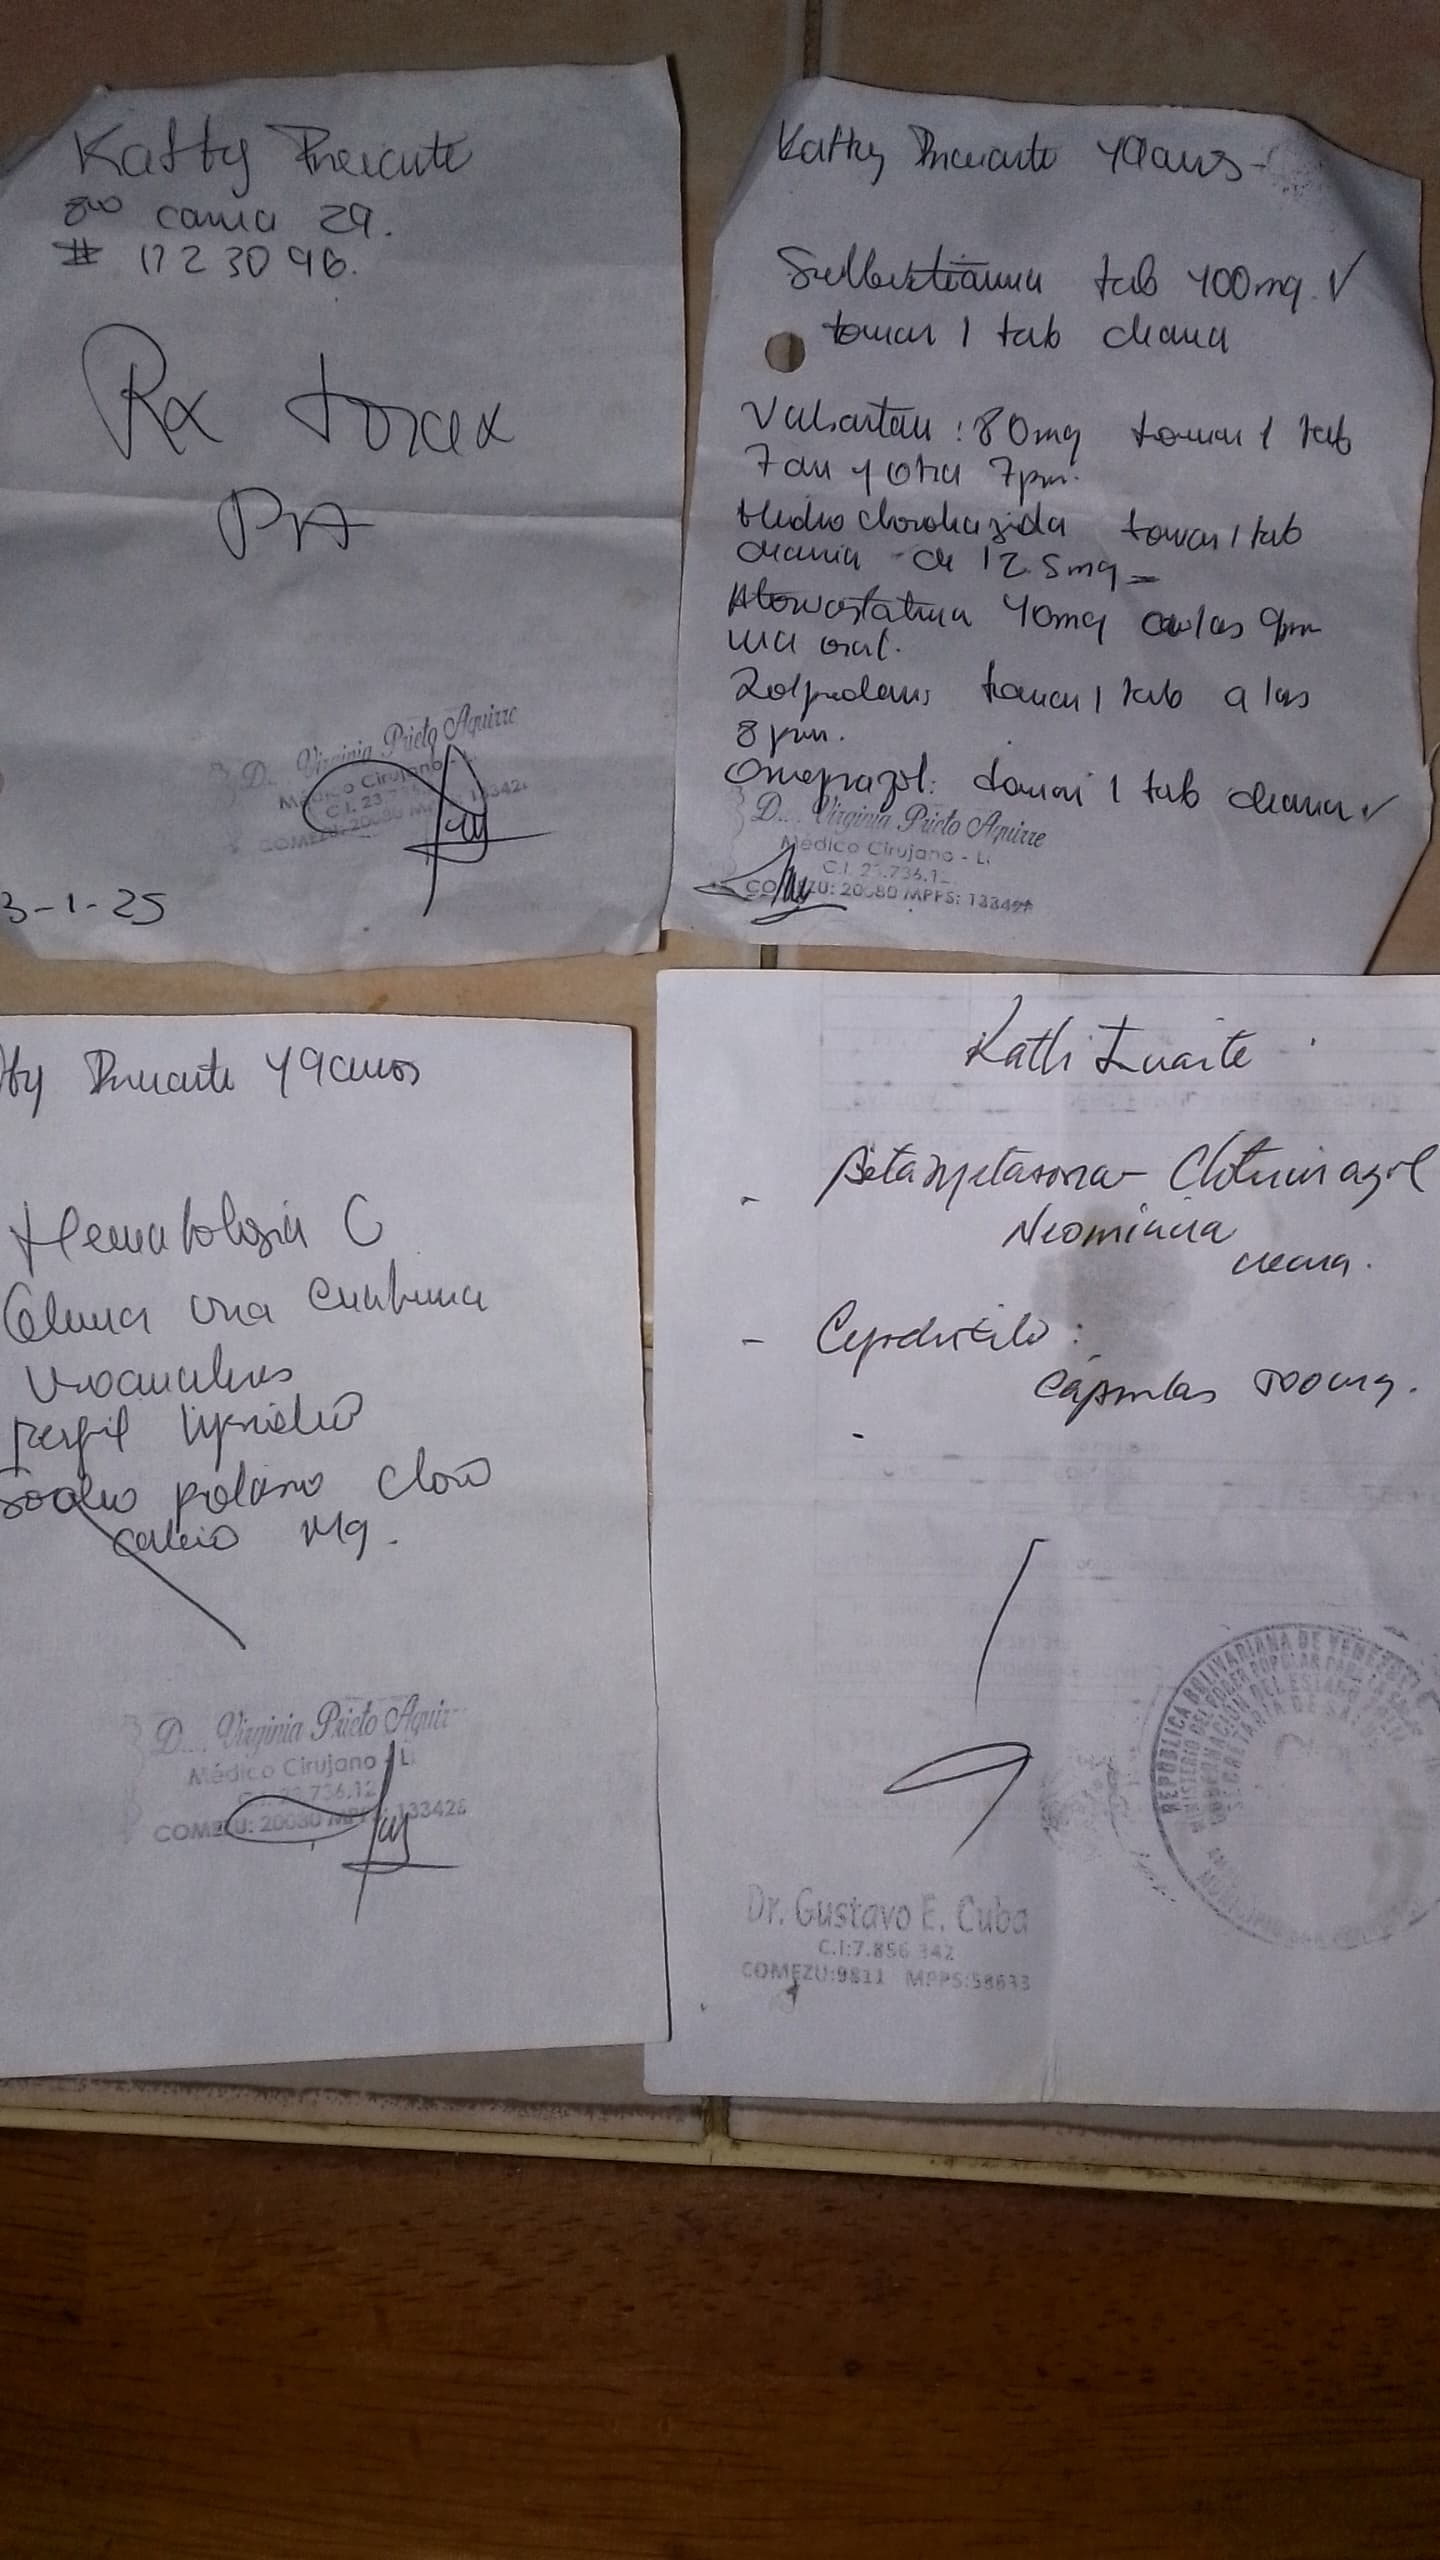 Katty
8vo cama 29.
# 1723096.
Rx torax
PA
D... Virginia Prieto Aguirre
Médico Cirujano - L
C.I. 23.736
COMEZU: 20080 MPPS: 133428
3-1-25
Katty 49años
tab 400mg. ✓
tomar 1 tab diaria
Valsartan : 80mg tomar 1 tab
7am y otra 7pm.
Hidroclorotiazida tomar 1 tab
diaria de 12.5mg
Atorvastatina 40mg a las 9pm
via oral.
tomar 1 tab a las
8pm.
Omeprazol: tomar 1 tab diaria ✓
D... Virginia Prieto Aguirre
Médico Cirujano - L
C.I. 23.736.1
COMEZU: 20080 MPPS: 133428
ty 49años
Hematologia C
Glicemia Urea Creatinina
Uroanalisis
perfil lipidico
Sodio potasio Cloro
calcio Mg.
D... Virginia Prieto Aguir
Médico Cirujano - L
736.12
COMEZU: 20080 MPPS: 133428
Kathi Iruarte
- Betametasona - Clotrimazol
Neomicina
crema.
- Cefadroxilo :
Capsulas 500mg.
-
REPÚBLICA BOLIVARIANA DE VENEZUELA
MINISTERIO DEL PODER POPULAR PARA LA SALUD
GOBERNACIÓN DEL ESTADO ZULIA
SECRETARIA DE SALUD
MUNICIPIO
Dr. Gustavo E. Cuba
C.I:7.856.342
COMEZU:9811 MPPS:58633